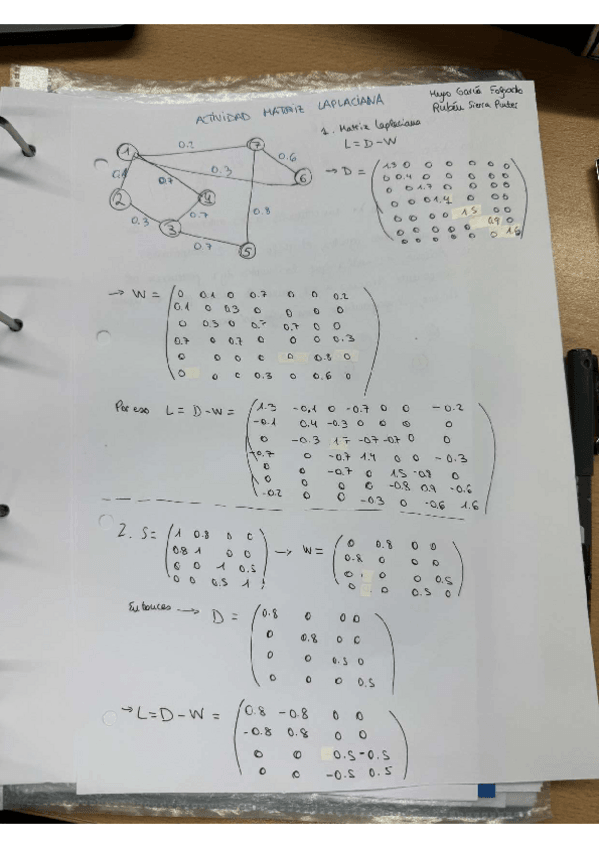 ACTIVIDAD MATRIZ LAPLACIANA
Hugo García
Rubén Sierra
1. Matriz Laplaciana
L = D - W
1 0.2 7 0.6
0.1 0.7 0.3 6
2 4
0.3 3 0.7 0.8
0.7 5
→ D =
1.3 0 0 0 0 0 0
0 0.4 0 0 0 0 0
0 0 1.7 0 0 0 0
0 0 0 1.4 0 0 0
0 0 0 0 1.5 0 0
0 0 0 0 0 0.9 0
0 0 0 0 0 0 1.6
→ W =
0 0.1 0 0.7 0 0 0.2
0.1 0 0.3 0 0 0 0
0 0.3 0 0.7 0.7 0 0
0.7 0 0.7 0 0 0 0.3
0 0 0 0 0 0.8 0
0 0 0 0.3 0 0.6 0
Por eso L = D - W =
1.3 -0.1 0 -0.7 0 0 -0.2
-0.1 0.4 -0.3 0 0 0 0
0 -0.3 1.7 -0.7 -0.7 0 0
-0.7 0 -0.7 1.4 0 0 -0.3
0 0 -0.7 0 1.5 -0.8 0
0 0 0 0 -0.8 0.9 -0.6
-0.2 0 0 -0.3 0 -0.6 1.6
2. S =
1 0.8 0 0
0.8 1 0 0
0 0 1 0.5
0 0 0.5 1
→ W =
0 0.8 0 0
0.8 0 0 0
0 0 0 0.5
0 0 0.5 0
Entonces → D =
0.8 0 0 0
0 0.8 0 0
0 0 0.5 0
0 0 0 0.5
→ L = D - W =
0.8 -0.8 0 0
-0.8 0.8 0 0
0 0 0.5 -0.5
0 0 -0.5 0.5